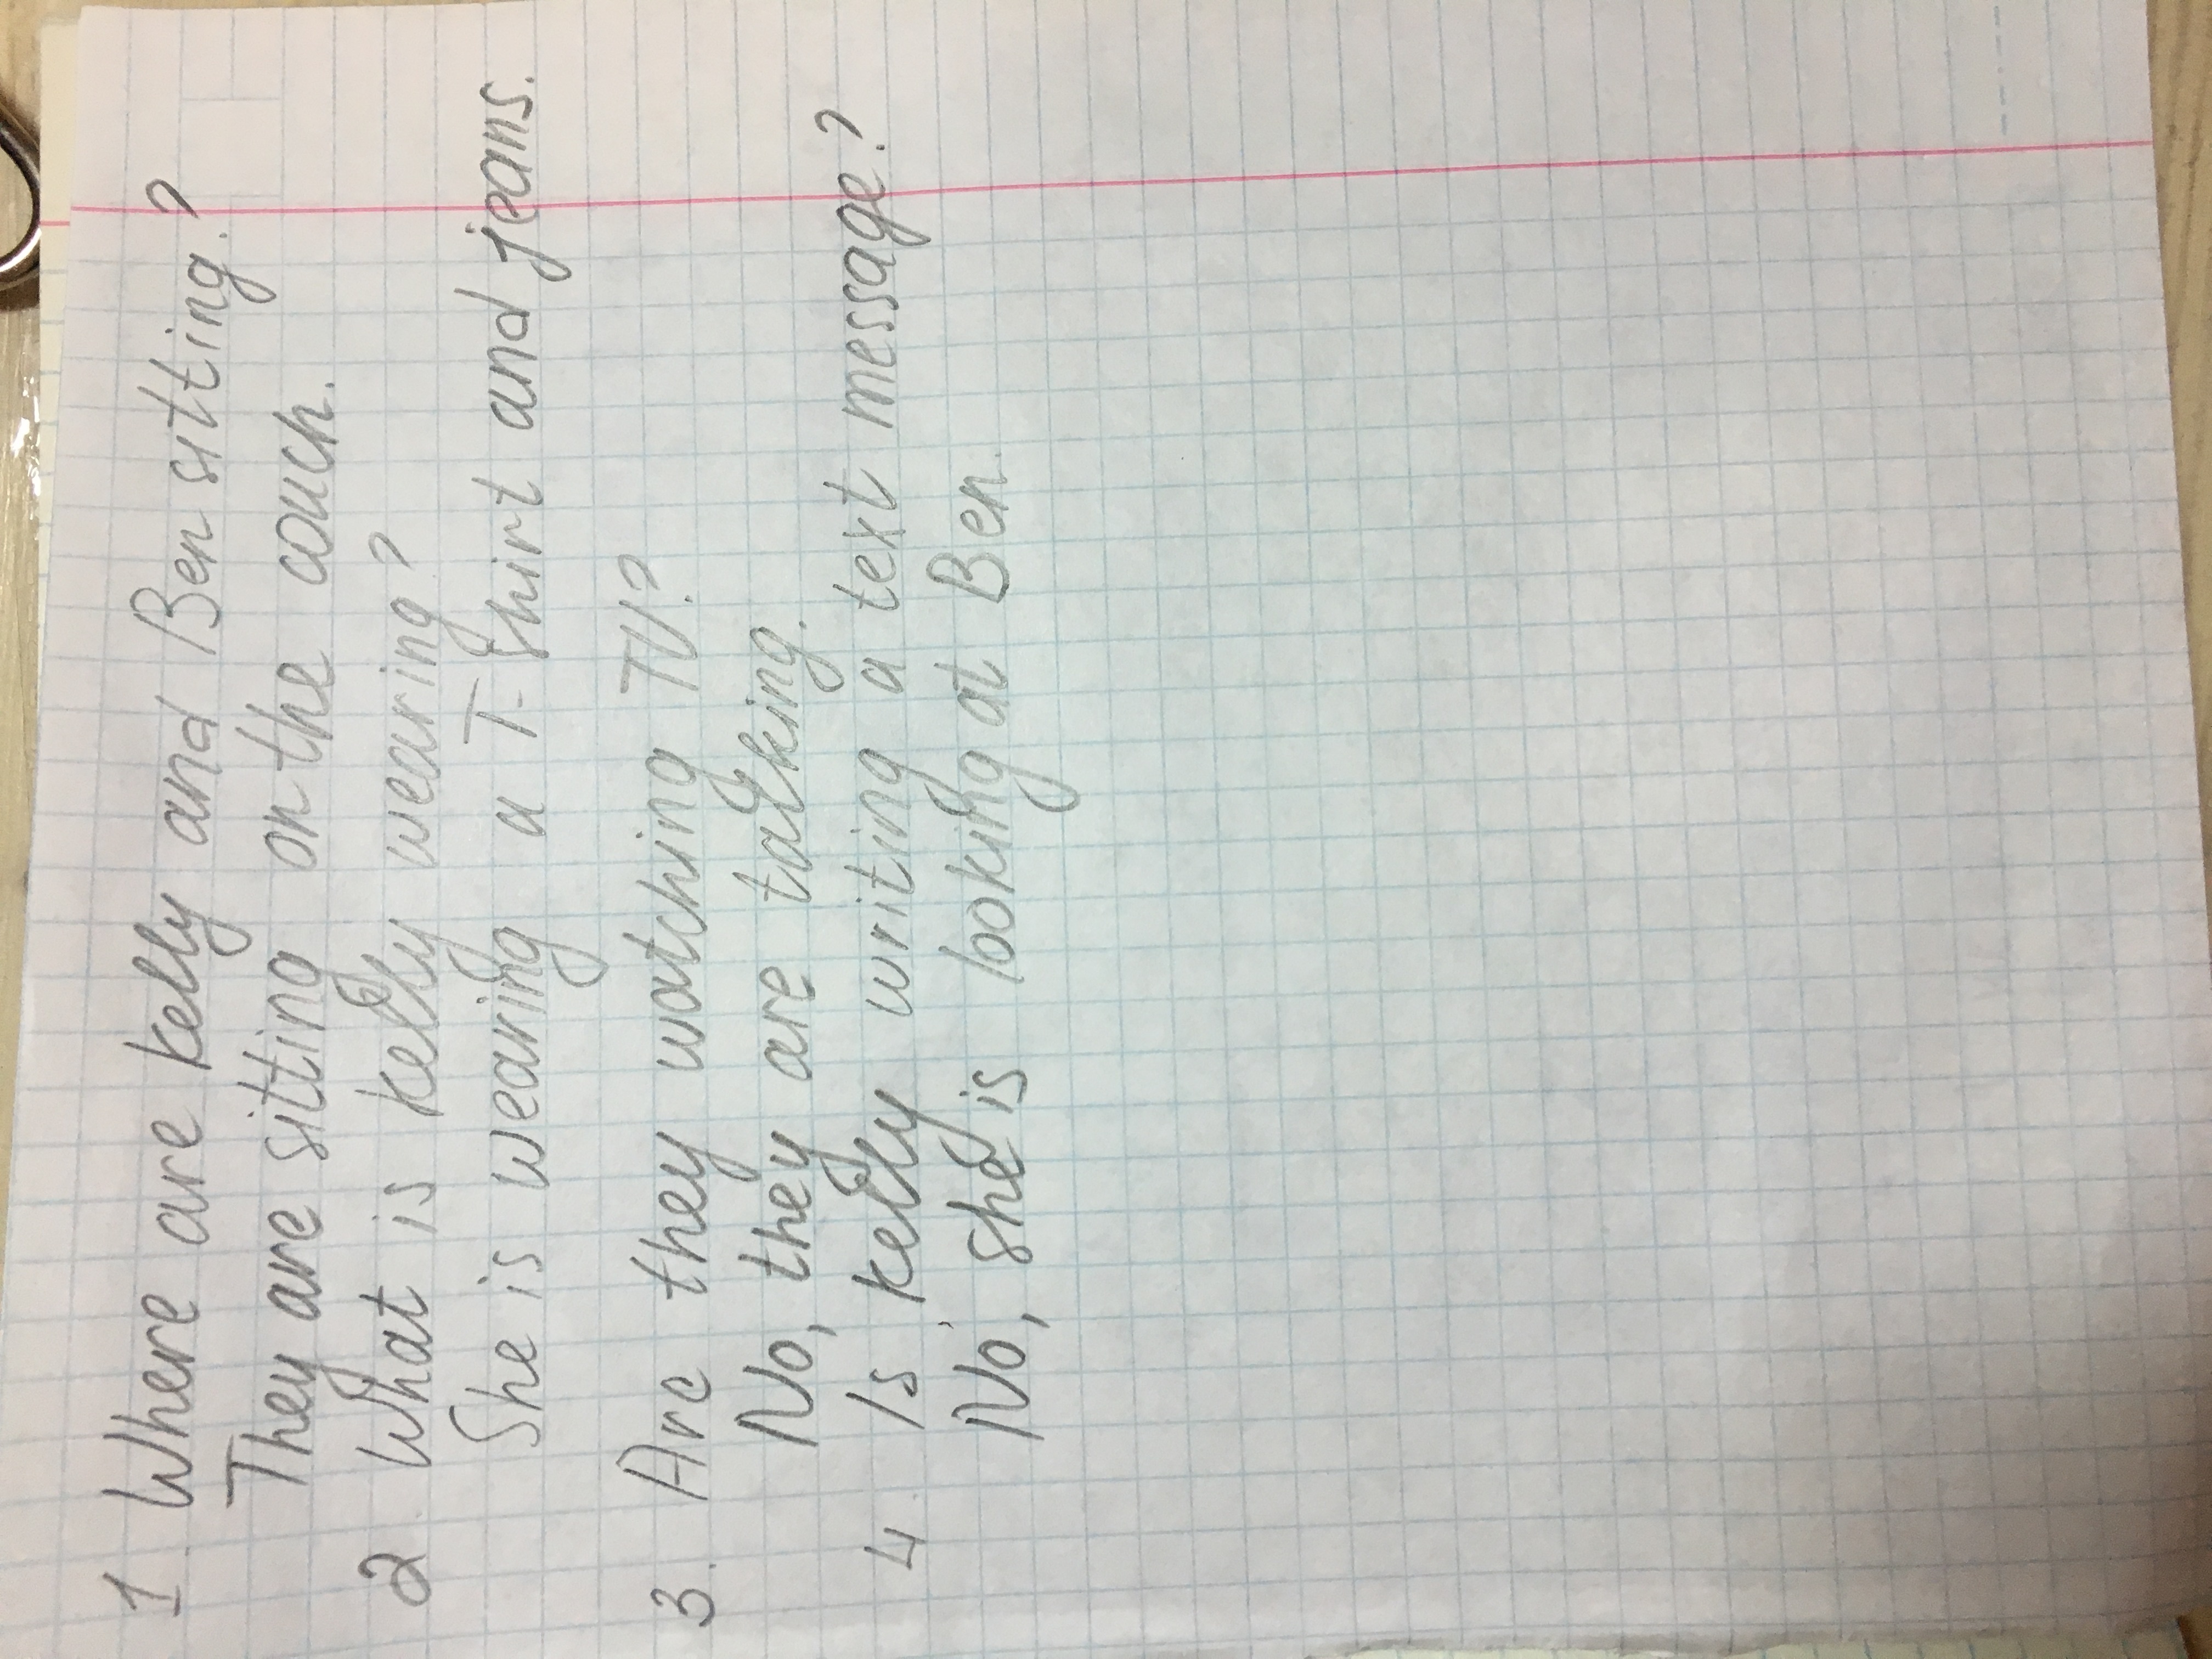 1. Where are kelly and Ben sitting?
They are sitting on the couch.
2. What is kelly wearing?
She is wearing a T-Shirt and jeans.
3. Are they watching TV?
No, they are talking.
4. Is kelly writing a text message?
No, she is looking at Ben.